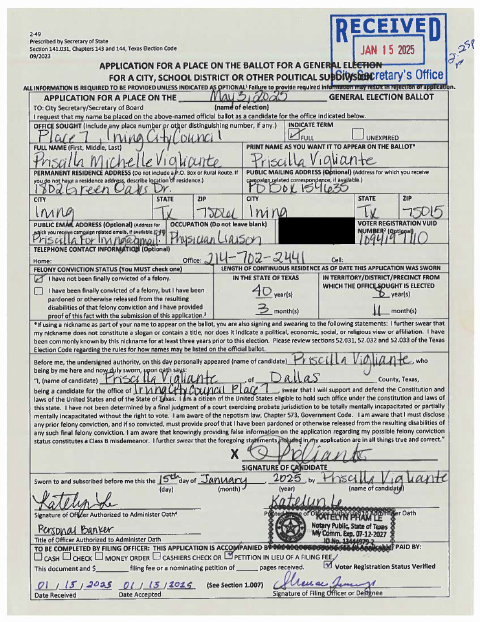 2-49
Prescribed by Secretary of State
Section 141.031, Chapters 143 and 144, Texas Election Code
09/2023
RECEIVED
JAN 15 2025
City Secretary's Office
APPLICATION FOR A PLACE ON THE BALLOT FOR A GENERAL ELECTION
FOR A CITY, SCHOOL DISTRICT OR OTHER POLITICAL SUBDIVISION
ALL INFORMATION IS REQUIRED TO BE PROVIDED UNLESS INDICATED AS OPTIONAL¹ Failure to provide required information may result in rejection of application.
APPLICATION FOR A PLACE ON THE May 3, 2025 GENERAL ELECTION BALLOT
(name of election)
TO: City Secretary/Secretary of Board
I request that my name be placed on the above-named official ballot as a candidate for the office indicated below.
OFFICE SOUGHT (Include any place number or other distinguishing number, if any.) INDICATE TERM
Place 7, Irving City Council FULL UNEXPIRED
FULL NAME (First, Middle, Last) PRINT NAME AS YOU WANT IT TO APPEAR ON THE BALLOT*
Priscilla Michelle Vigliante Priscilla Vigliante
PERMANENT RESIDENCE ADDRESS (Do not include a P.O. Box or Rural Route. If you do not have a residence address, describe location of residence.) PUBLIC MAILING ADDRESS (Optional) (Address for which you receive campaign related correspondence, if available.)
1802 Green Oaks Dr. PO Box 154635
CITY STATE ZIP CITY STATE ZIP
Irving TX Irving TX 75015
PUBLIC EMAIL ADDRESS (Optional) (Address for which you receive campaign related emails, if available.) OCCUPATION (Do not leave blank) VOTER REGISTRATION VUID NUMBER² (Optional)
Physician Liaison
TELEPHONE CONTACT INFORMATION (Optional)
Home: Office: 214-702-2441 Cell:
FELONY CONVICTION STATUS (You MUST check one) LENGTH OF CONTINUOUS RESIDENCE AS OF DATE THIS APPLICATION WAS SWORN
I have not been finally convicted of a felony. IN THE STATE OF TEXAS IN TERRITORY/DISTRICT/PRECINCT FROM WHICH THE OFFICE SOUGHT IS ELECTED
I have been finally convicted of a felony, but I have been pardoned or otherwise released from the resulting disabilities of that felony conviction and I have provided proof of this fact with the submission of this application.³
40 year(s) year(s)
3 month(s) 11 month(s)
*If using a nickname as part of your name to appear on the ballot, you are also signing and swearing to the following statements: I further swear that my nickname does not constitute a slogan or contain a title, nor does it indicate a political, economic, social, or religious view or affiliation. I have been commonly known by this nickname for at least three years prior to this election. Please review sections 52.031, 52.032 and 52.033 of the Texas Election Code regarding the rules for how names may be listed on the official ballot.
Before me, the undersigned authority, on this day personally appeared (name of candidate) Priscilla Vigliante, who
being by me here and now duly sworn, upon oath says:
"I, (name of candidate) Priscilla Vigliante, of Dallas County, Texas,
being a candidate for the office of Irving City Council Place 7, swear that I will support and defend the Constitution and
laws of the United States and of the State of Texas. I am a citizen of the United States eligible to hold such office under the constitution and laws of
this state. I have not been determined by a final judgment of a court exercising probate jurisdiction to be totally mentally incapacitated or partially
mentally incapacitated without the right to vote. I am aware of the nepotism law, Chapter 573, Government Code. I am aware that I must disclose
any prior felony conviction, and if so convicted, must provide proof that I have been pardoned or otherwise released from the resulting disabilities of
any such final felony conviction. I am aware that knowingly providing false information on the application regarding my possible felony conviction
status constitutes a Class B misdemeanor. I further swear that the foregoing statements included in my application are in all things true and correct."
X
SIGNATURE OF CANDIDATE
Sworn to and subscribed before me this the 15th day of January, 2025, by Priscilla Vigliante
(day) (month) (year) (name of candidate)
Katelyn Le Katelyn Le
Signature of Officer Authorized to Administer Oath⁴
KATELYN PHAM LE
Notary Public, State of Texas
My Comm. Exp. 07-12-2027
Personal Banker
Title of Officer Authorized to Administer Oath
TO BE COMPLETED BY FILING OFFICER: THIS APPLICATION IS ACCOMPANIED BY PAID BY:
CASH CHECK MONEY ORDER CASHIERS CHECK OR PETITION IN LIEU OF A FILING FEE.
This document and $ filing fee or a nominating petition of pages received. Voter Registration Status Verified
01 / 15 / 2025 01 / 15 / 2025 (See Section 1.007)
Date Received Date Accepted Signature of Filing Officer or Designee